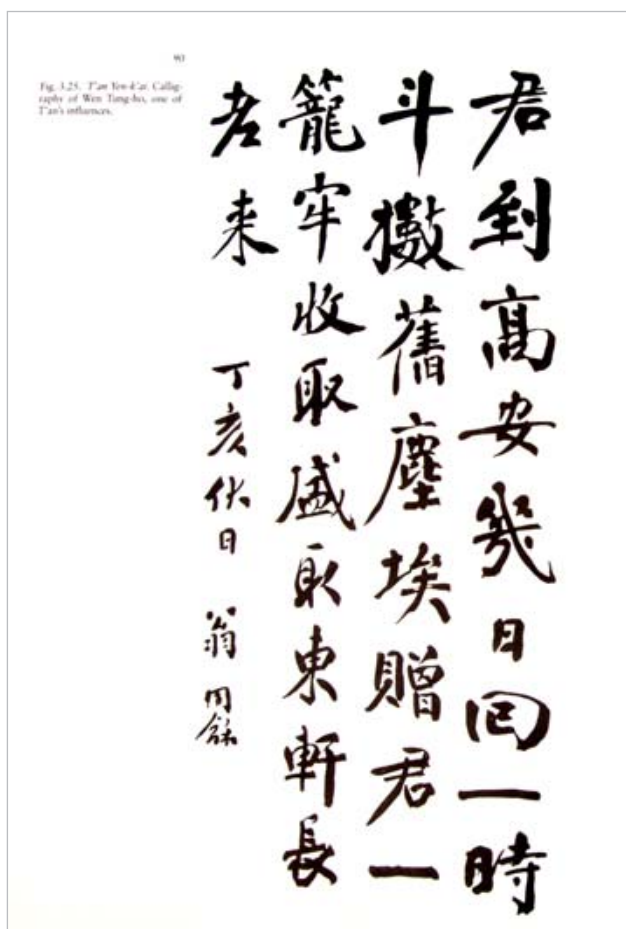 90
Fig. 3.25. T'an Yen-k'ai. Callig-
raphy of Wen Tung-ho, one of
T'an's influences.
君到高安幾日回一時
斗擻舊塵埃贈君一
籠牢收取盛取東軒長
老来
丁亥伏日 翁同龢